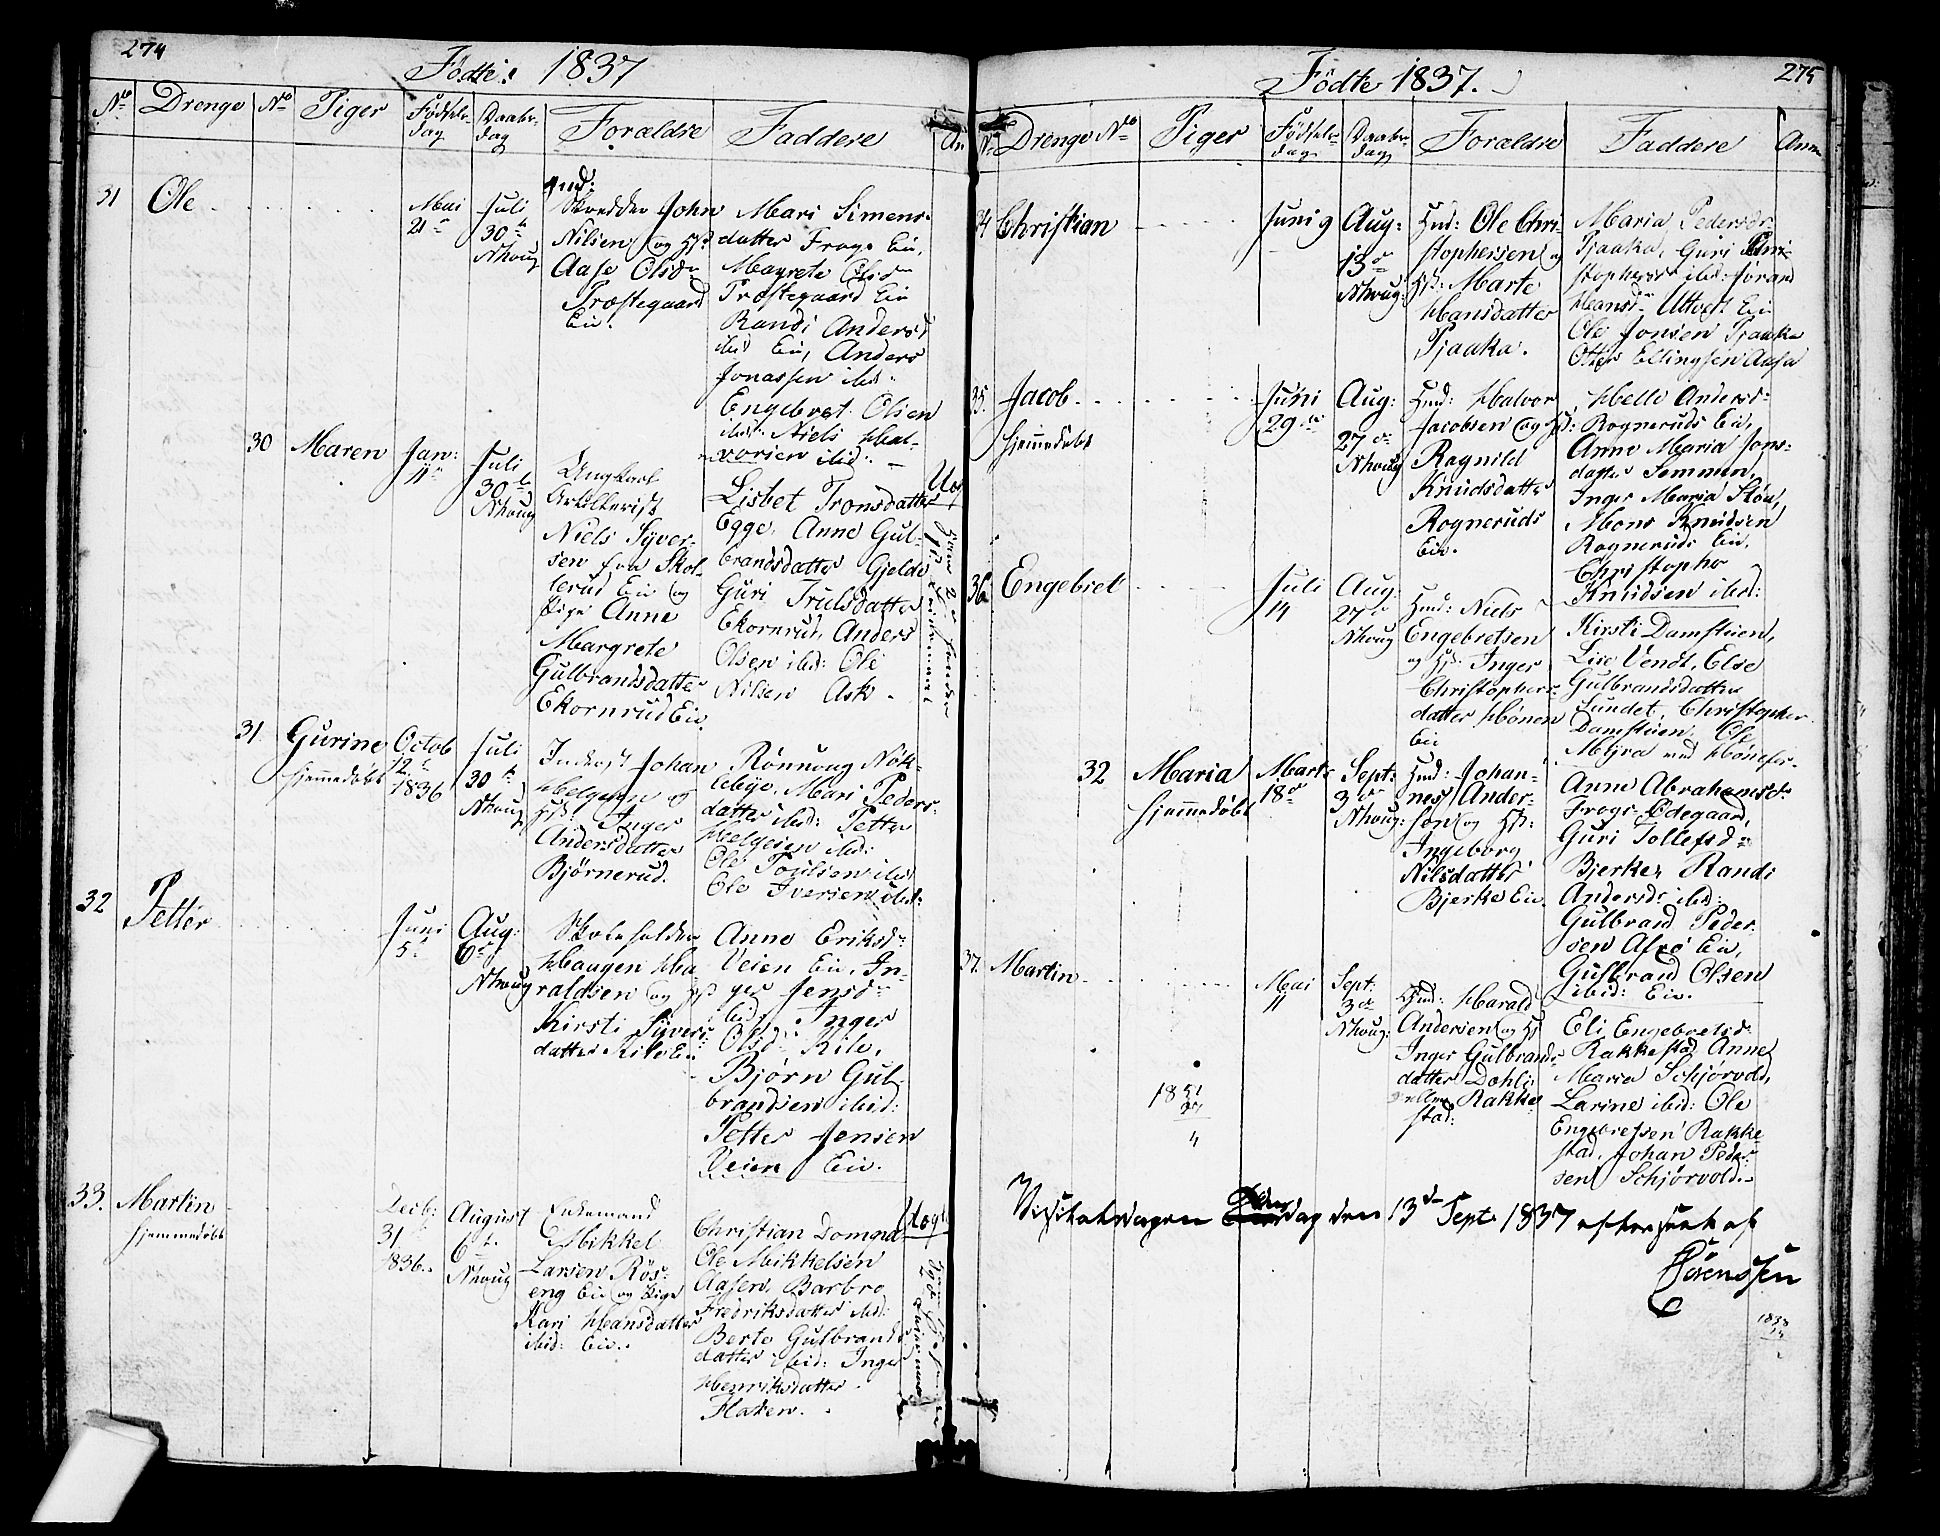 274
Födte: 1837
No Drenge No Piger Födsels- Daabs- Forældre Faddere An
dag dag
31 Ole Mai 21 Juli 30 Nhoug
Skredder John
Nilsen og Hst
Aase Olsdr
Præstegaard
Eie.
Mari Simens-
datter Frogs Eie,
Magrete Olsdr
Præstegaard Eie
Randi Andersd
ibid Eie, Anders
Jonassen ibid:
Engebret Olsen
ibid: Niels Hal-
vorsen ibid:
30 Maren Jan: 11 Juli 30 Nhoug
Ungkarl
Artillerist
Niels Syver-
sen fra Skol-
lerud Eie og
Pige Anne
Margrete
Gulbrandsdatter
Ekornrud Eie.
Lisbet Tronsdatter
Egge, Anne Gul-
brandsdatter Gjelde
Guri Trulsdatter
Ekornrud, Anders
Olsen ibid: Ole
Nilsen Ask.
31. Gurine hjemmedøbt Octob 12 1836 Juli 30 Nhoug
Inderst Johan
Helgesen og
Hst: Inger
Andersdatter
Bjørnerud.
Rönnoug Nök-
lebye, Mari Peders-
datter ibid: Petter
Helgesen ibid:
Ole Poulsen ibid
Ole Iversen ibid:
32 Petter Juni 5 Aug: 6 Nhoug
Skoleholder
Haugen Ha-
raldsen og Hst
Kirsti Syvers-
datter Kile Eie
Anne Eriksdr
Veien Eie, In-
ger Jensdr
ibid, Inger
Olsdr Kile,
Björn Gul-
brandsen ibid:
Petter Jensen
Veien Eie.
33. Martin hjemmedøbt Decb: 31 1836. August 6 Nhoug
Enkemand
Mikkel
Larsen Rös-
eng Eie og Pige
Kari Hansdatter
ibid: Eie.
Christian Domna
Ole Mikkelsen
Aasen, Barbro
Fredriksdatter ibid:
Berte Gulbrands
datter ibid: Inger
Henriksdatter
Flaken.
275
Födte 1837.
No Drenge No Piger Födsels- Daabs- Forældre Faddere Anm
dag dag
34 Christian Juni 9 Aug: 13 Nhoug:
Hmd: Ole Chri-
stophersen og
Hst: Marte
Hansdatter
Tjaaka.
Maria Pedersdr
Tjaaka, Guri Chri-
stophersdr ibid: Jörand
Hansdr Utvedt Eie
Ole Jonsen Tjaaka
Otter Ellingsen Aasa
35. Jacob hjemmedøbt Juni 29 Aug: 27 Nhoug
Hmd: Halvor
Jacobsen og Hst:
Ragnild
Knudsdatter
Rogneruds
Eie.
Helle Andersd:
Rogneruds Eie,
Anne Maria Jons-
datter Semmen,
Inger Maria Stöa,
Mons Knudsen
Rogneruds Eie,
Christopher
Knudsen ibid:
36 Engebret Juli 14 Aug: 27 Nhoug
Hmd: Niels
Engebretsen
og Hst: Inger
Christophers-
datter Hönen
Eie
Kirsti Damstuen,
Lise Vendt, Else
Gulbrandsdatter
Lundet, Christopher
Damstuen, Ole
Myra ved Hönefos.
32 Maria hjemmedøbt Marts 18 Sept: 3 Nhoug:
Hmd: Johan-
nes Ander-
sen og Hst:
Ingeborg
Nilsdatter
Bjerke Eie.
Anne Abrahamsdr
Frogs Ødegaard,
Guri Tollefsdr
Bjerke, Randi
Andersdr ibid:
Gulbrand Peder-
sen Alsø Eie,
Gulbrand Olsen
ibid: Eie.
37. Martin Mai 11 Sept: 3 Nhoug:
Hmd: Harald
Andersen og Hst
Inger Gulbrands-
datter Dæhli
Rakke-
stad:
Eli Engebretsd:
Rakkestad, Anne
Maria Schjörvold,
Larine ibid: Ole
Engebretsen Rakke-
stad, Johan Peder-
sen Schjörvold.
1851
37
4
Visitatsdagen Onsdag den 13de Sept: 1837 efterseet af
Sørenssen
1838